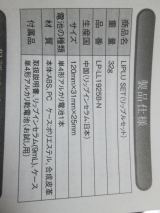 製品仕様
品名 LIPLU SET(リップルセット)
品番 LP-LL19258-N
質量 32g
生産国 中国(リップインセラム:日本)
120mm×31mm×25mm
電池の種類 単4形アルカリ電池1本
材質 本体:ABS、PC、ケース:ポリエステル、合成皮革
付属品 取扱説明書、リップインセラム(9mL)、ケース
単4形アルカリ乾電池(お試し用)